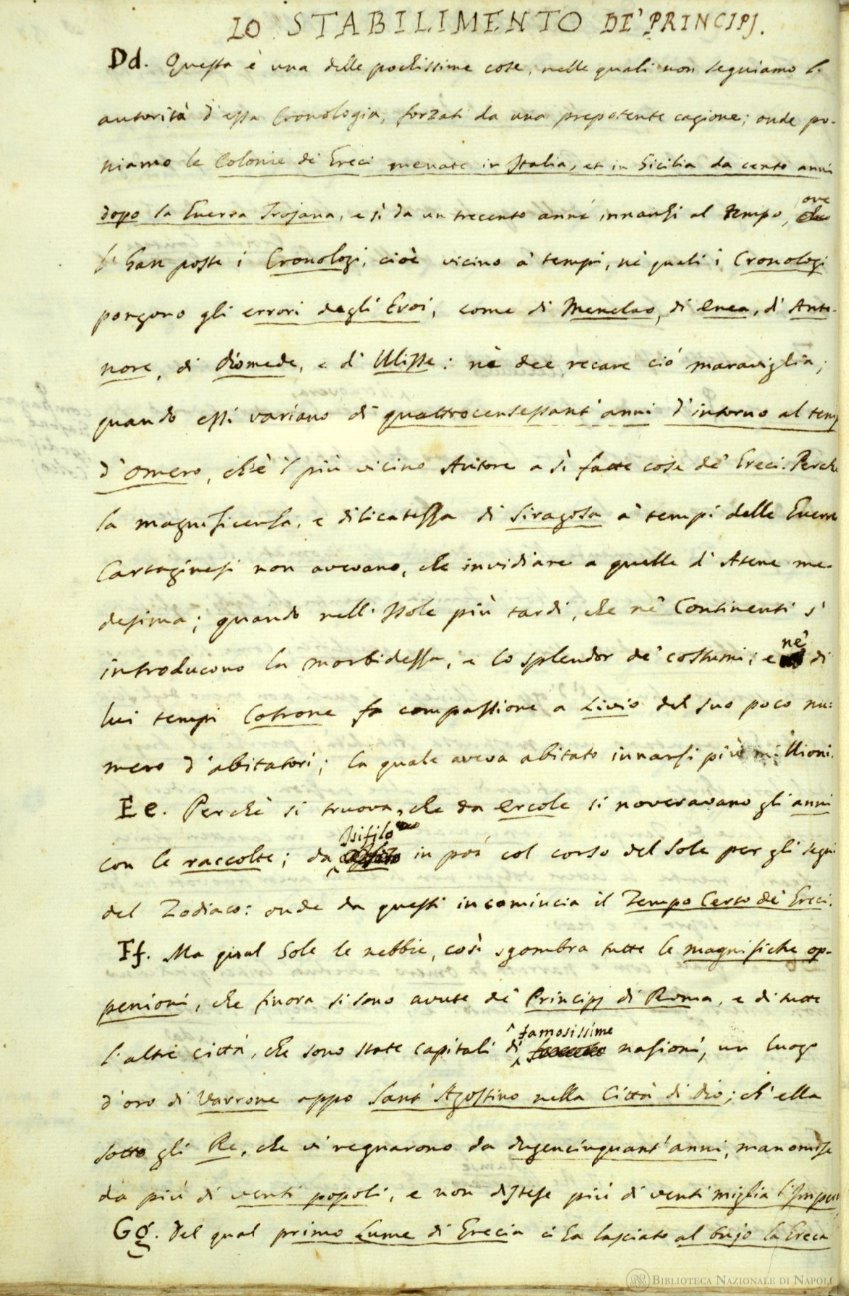 LO STABILIMENTO DE' PRINCIPJ.
Dd. Questa è una delle pochissime cose, nelle quali non seguiamo l'
autorità d'essa Cronologia, forzati da una prepotente cagione; onde po-
niamo le Colonie de' Greci menate in Italia, et in Sicilia da cento anni
dopo la Guerra Trojana, e sì da un trecento anni innanzi al tempo, ove
l' han posto i Cronologi, cioè vicino a' tempi, ne' quali i Cronologi
pongono gli errori degli Eroi, come di Menelao, di Enea, d' Ante-
nore, di Diomede, e d' Ulisse: nè dee recare ciò maraviglia;
quando essi variano di quattrocensessant' anni d'intorno al temp
d'Omero, ch'è 'l più vicino Autore a sì fatte cose de' Greci. Perchè
la magnificenza, e dilicatezza di Siragosa a' tempi delle Guerre
Cartaginesi non avevano, che invidiare a quelle d' Atene me-
desima; quando nell' Isole più tardi, che ne' Continenti s'
introducono la morbidezza, e lo splendor de' costumi; e ne' di
lui tempi Cotrone fa compassione a Livio del suo poco nu-
mero d'abitatori; la quale aveva abitato innanzi più millioni.
Ee. Perchè si truova, che da Ercole si noveravano gli anni
con le raccolte; da Isifilo in poi col corso del Sole per gli segni
del Zodiaco: onde da questi incomincia il Tempo Certo de' Greci.
Ff. Ma qual Sole le nebbie, così sgombra tutte le magnifiche op-
penioni, che finora si sono avute de' Principj di Roma, e di tutte
l'altre città, che sono state capitali di famosissime nazioni, un luogo
d'oro di Varrone appo Sant' Agostino nella Città di Dio; ch' ella
sotto gli Re, che vi regnarono da dugencinquant' anni, manomise
da più di venti popoli, e non distese più di venti miglia l'Imperio
Gg. Del qual primo Lume di Grecia ci ha lasciato al bujo la Greca
BIBLIOTECA NAZIONALE DI NAPOLI